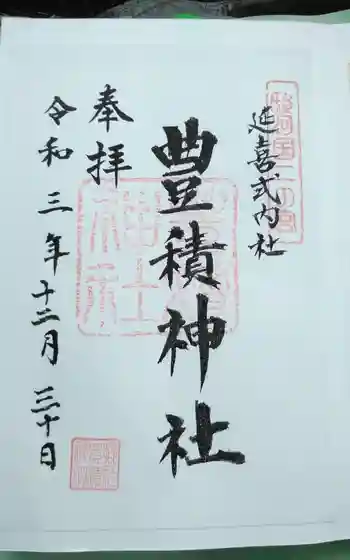 延喜式内社
豊積神社
奉拝
令和三年十二月三十日